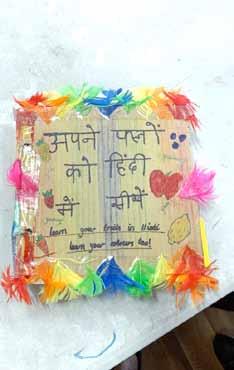 अपने फलों
को हिंदी
में सीखें
learn your fruits in Hindi
learn your colours too!